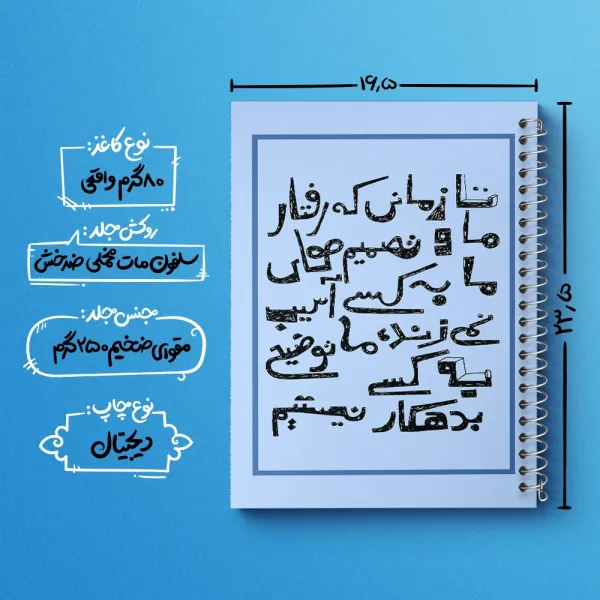 ۱۶٫۵
۲۳٫۵
نوع کاغذ:
۸۰ گرم واقعی
روکش جلد:
سلفون مات مخملی ضدخش
جنس جلد:
مقوای ضخیم ۲۵۰ گرم
نوع چاپ:
دیجیتال
تا زمانی که رفتار
ما و تصمیم های
ما به کسی آسیب
نمی زند، ما توضیحی
به کسی
بدهکار نیستیم